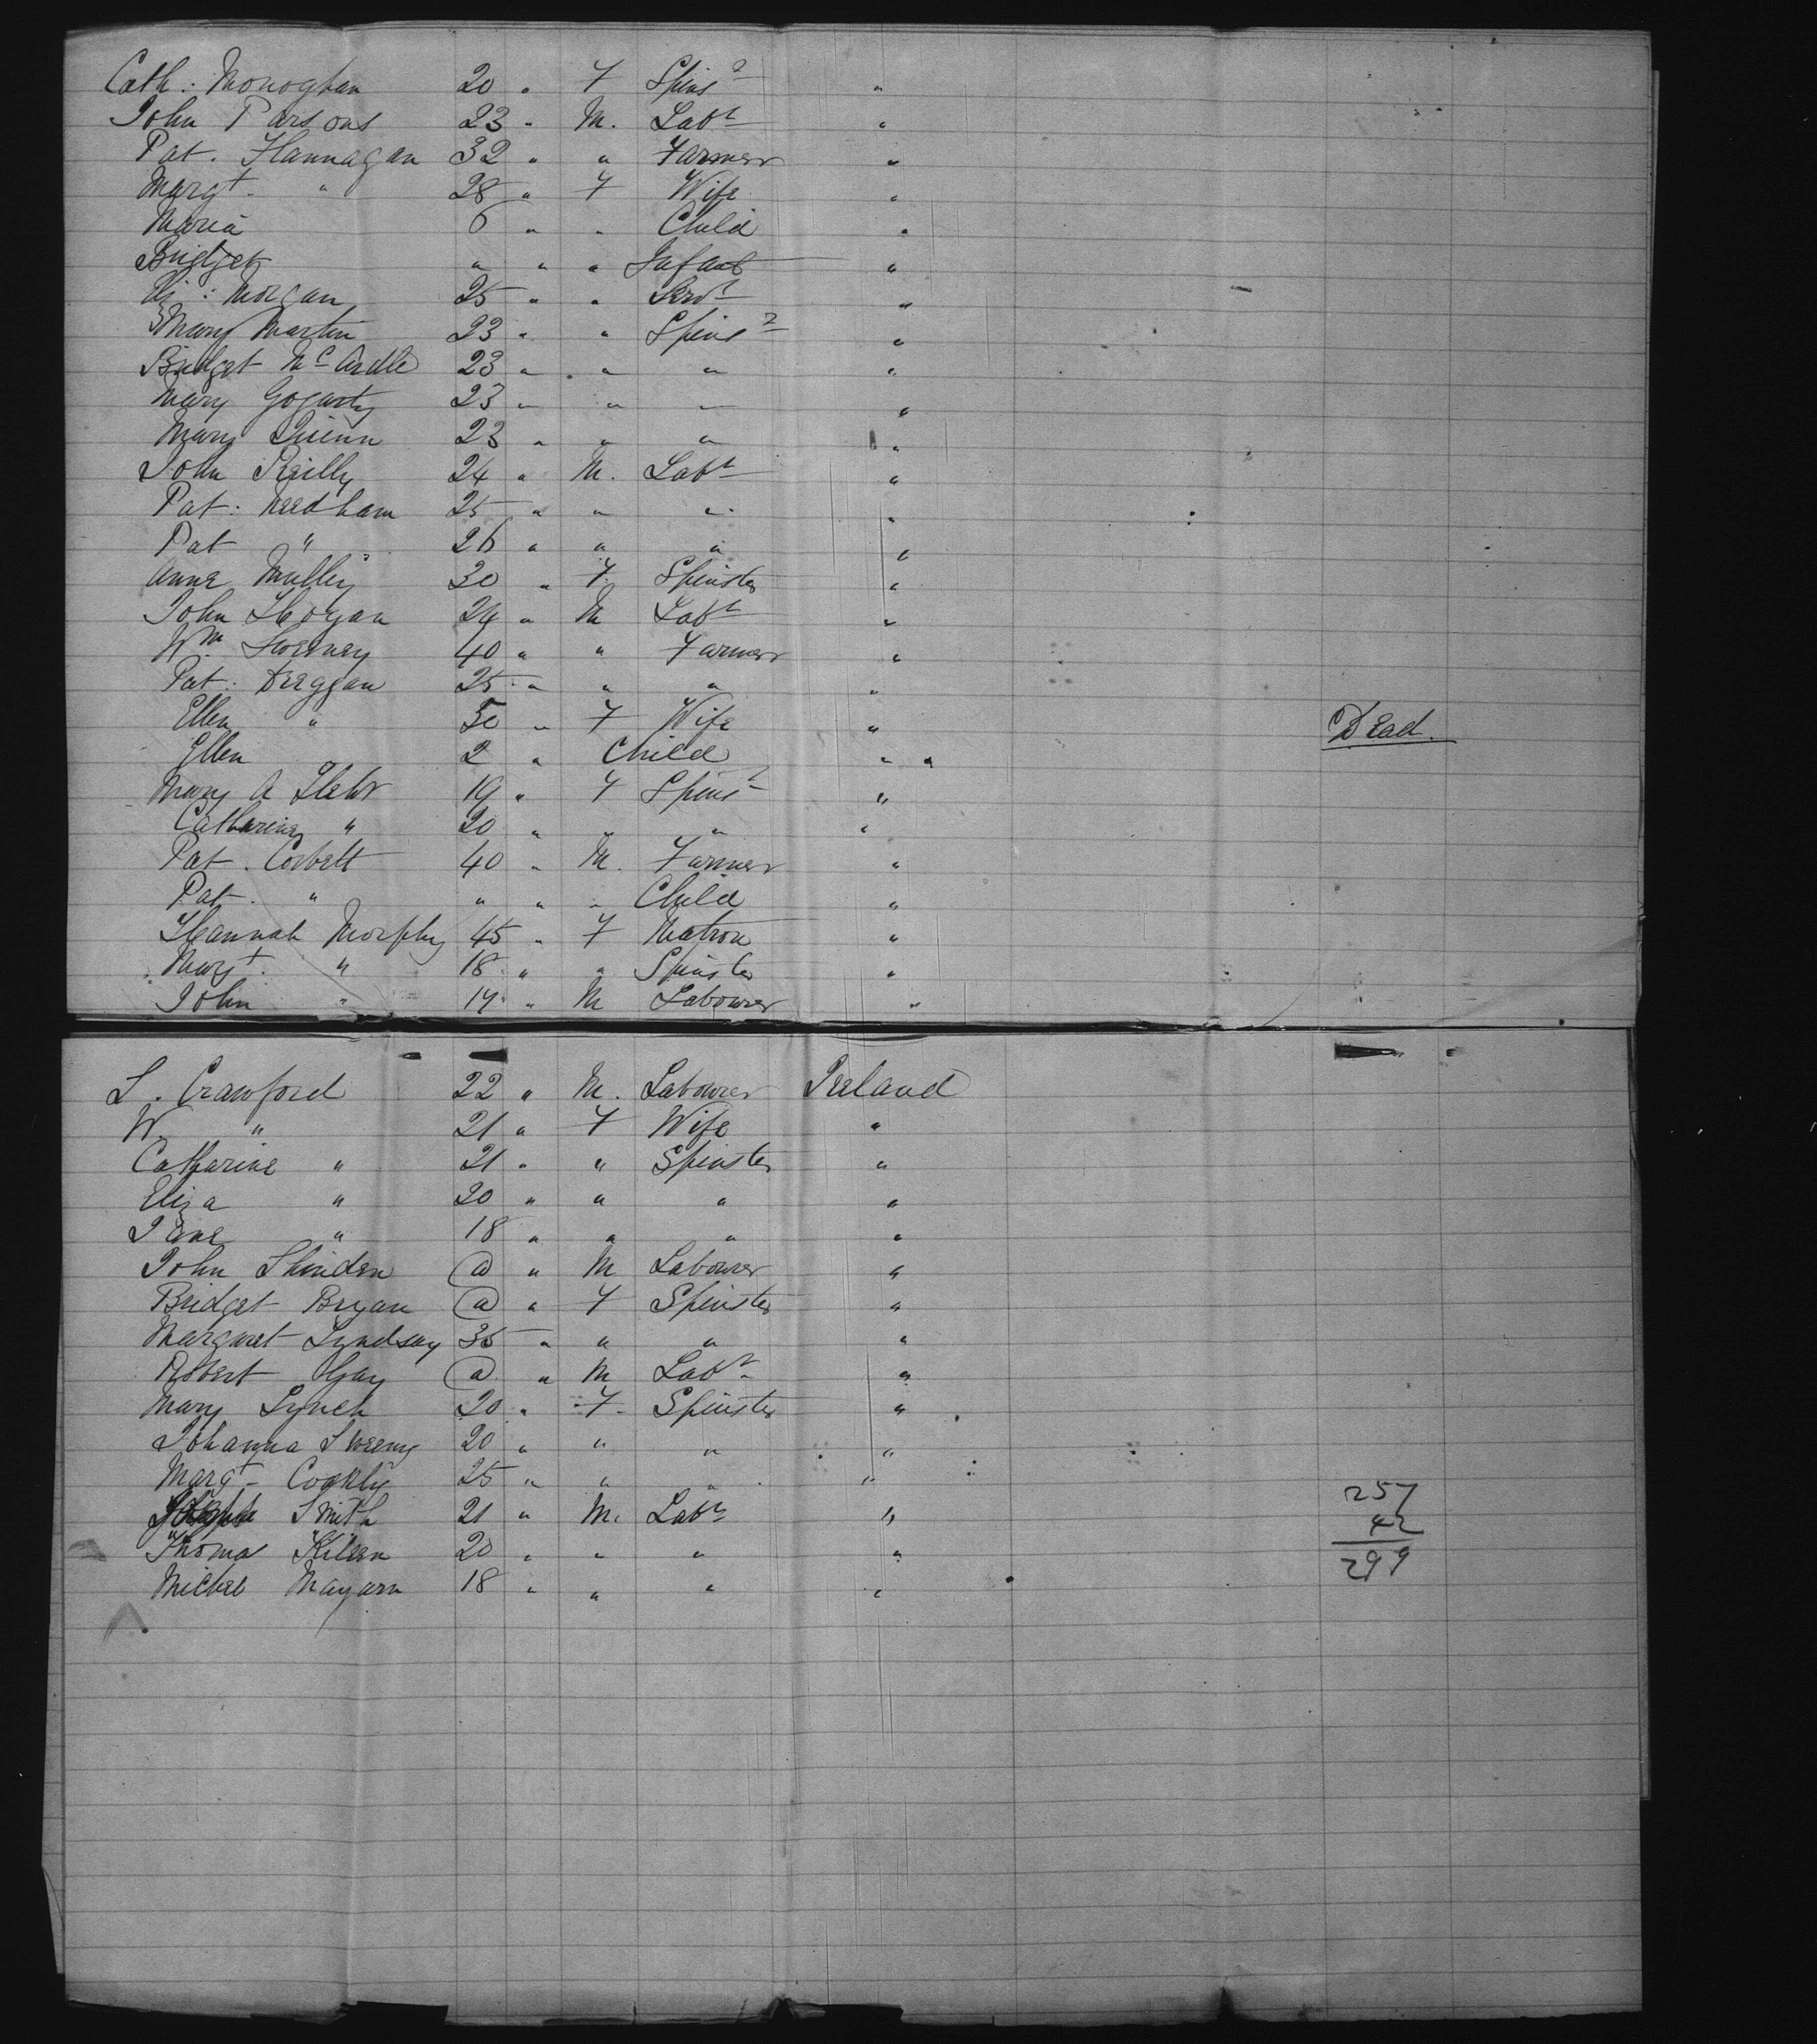 Cath: Monoghan 20 " F Spins^r "
John Parsons 23 " M. Lab^r "
Pat. Hannagan 32 " " Farmer "
Marg^t " 28 " F Wife "
Maria 6 " " Child "
Bridget " " " Infant "
Morgan 25 " " Serv^t "
Mary Martin 23 " " Spins^r "
Bridget M^c Ardle 23 " " " "
Mary Gogarty 23 " " " "
Mary Quinn 23 " " " "
John Reilly 24 " M. Lab^r "
Pat: Needham 25 " " " "
Pat " 26 " " " "
Anne Mulley 30 " F. Spinster "
John Hogan 24 " M Lab^r "
W^m Sweeney 40 " " Farmer "
Pat: Deggan 25 " " " "
Ellen " 30 " F Wife " Dead.
Ellen 2 " Child " "
Mary A 19 " F Spins^r "
Catharine " 20 " " " "
Pat. Corbett 40 " M. Farmer "
Pat. " " " " Child "
Hannah Morphy 45 " F Matron "
Marg^t. " 18 " " Spinster "
John " 14 " M Labourer "
L. Crawford 22 " M. Labourer Ireland
W. " 21 " F Wife "
Catharine " 21 " " Spinster "
Eliza " 20 " " " "
Jane " 18 " " " "
John Shinden @ " M Labourer "
Bridget Bryan @ " F Spinster "
Margaret Lyndsay 35 " " " "
Robert Gay @ " M Lab^r "
Mary Lynch 20 " F. Spinster "
Johanna Sweeny 20 " " " "
Marg^t Coakly 25 " " " "
257
Smith 21 " M. Lab^r "
42
Thomas Kileen 20 " " " "
299
Michel Mayarn 18 " " " "